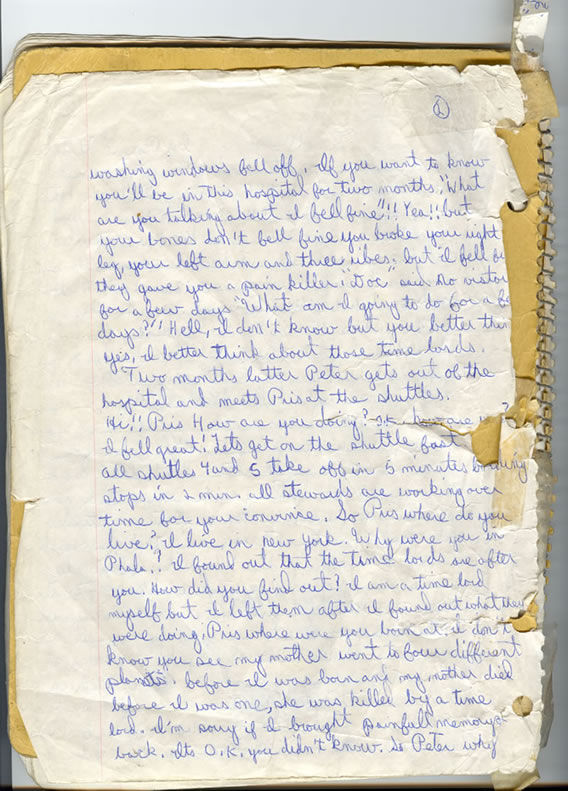 2
washing windows fell off. If you want to know
you'll be in this hospital for two months. "What
are you talking about I fell fine"!! Yea!! but
your bones don't fell fine you broke your right
leg, your left arm and three ribes. but I fell
they gave you a pain killer. "Doc" said no vistor
for a few days "What am I going to do for a
days?" Hell, I don't know but you better
yis, I better think about those time lords.
Two months latter Peter gets out of the
hospital and meets Pris at the shuttles.
Hi!! Pris How are you doing? O.K. how are
I fell great! Lets get on the shuttle fast
all shutles 4 and 5 take off in 5 minutes
stops in 2 min. all stewards are working over
time for your convinine. So Pris where do you
live? I live in new york. Why were you in
Phila.? I found out that the time lords are after
you. How did you find out? I am a time lord
myself but I left them after I found out what they
were doing. Pris where were you born at. I don't
know you see my mother went to four different
planets. before I was born and my mother died
before I was one, she was killed by a time
lord. I'm sorry if I brought painfull memorys
back. Its O.K. you didn't know. So Peter why